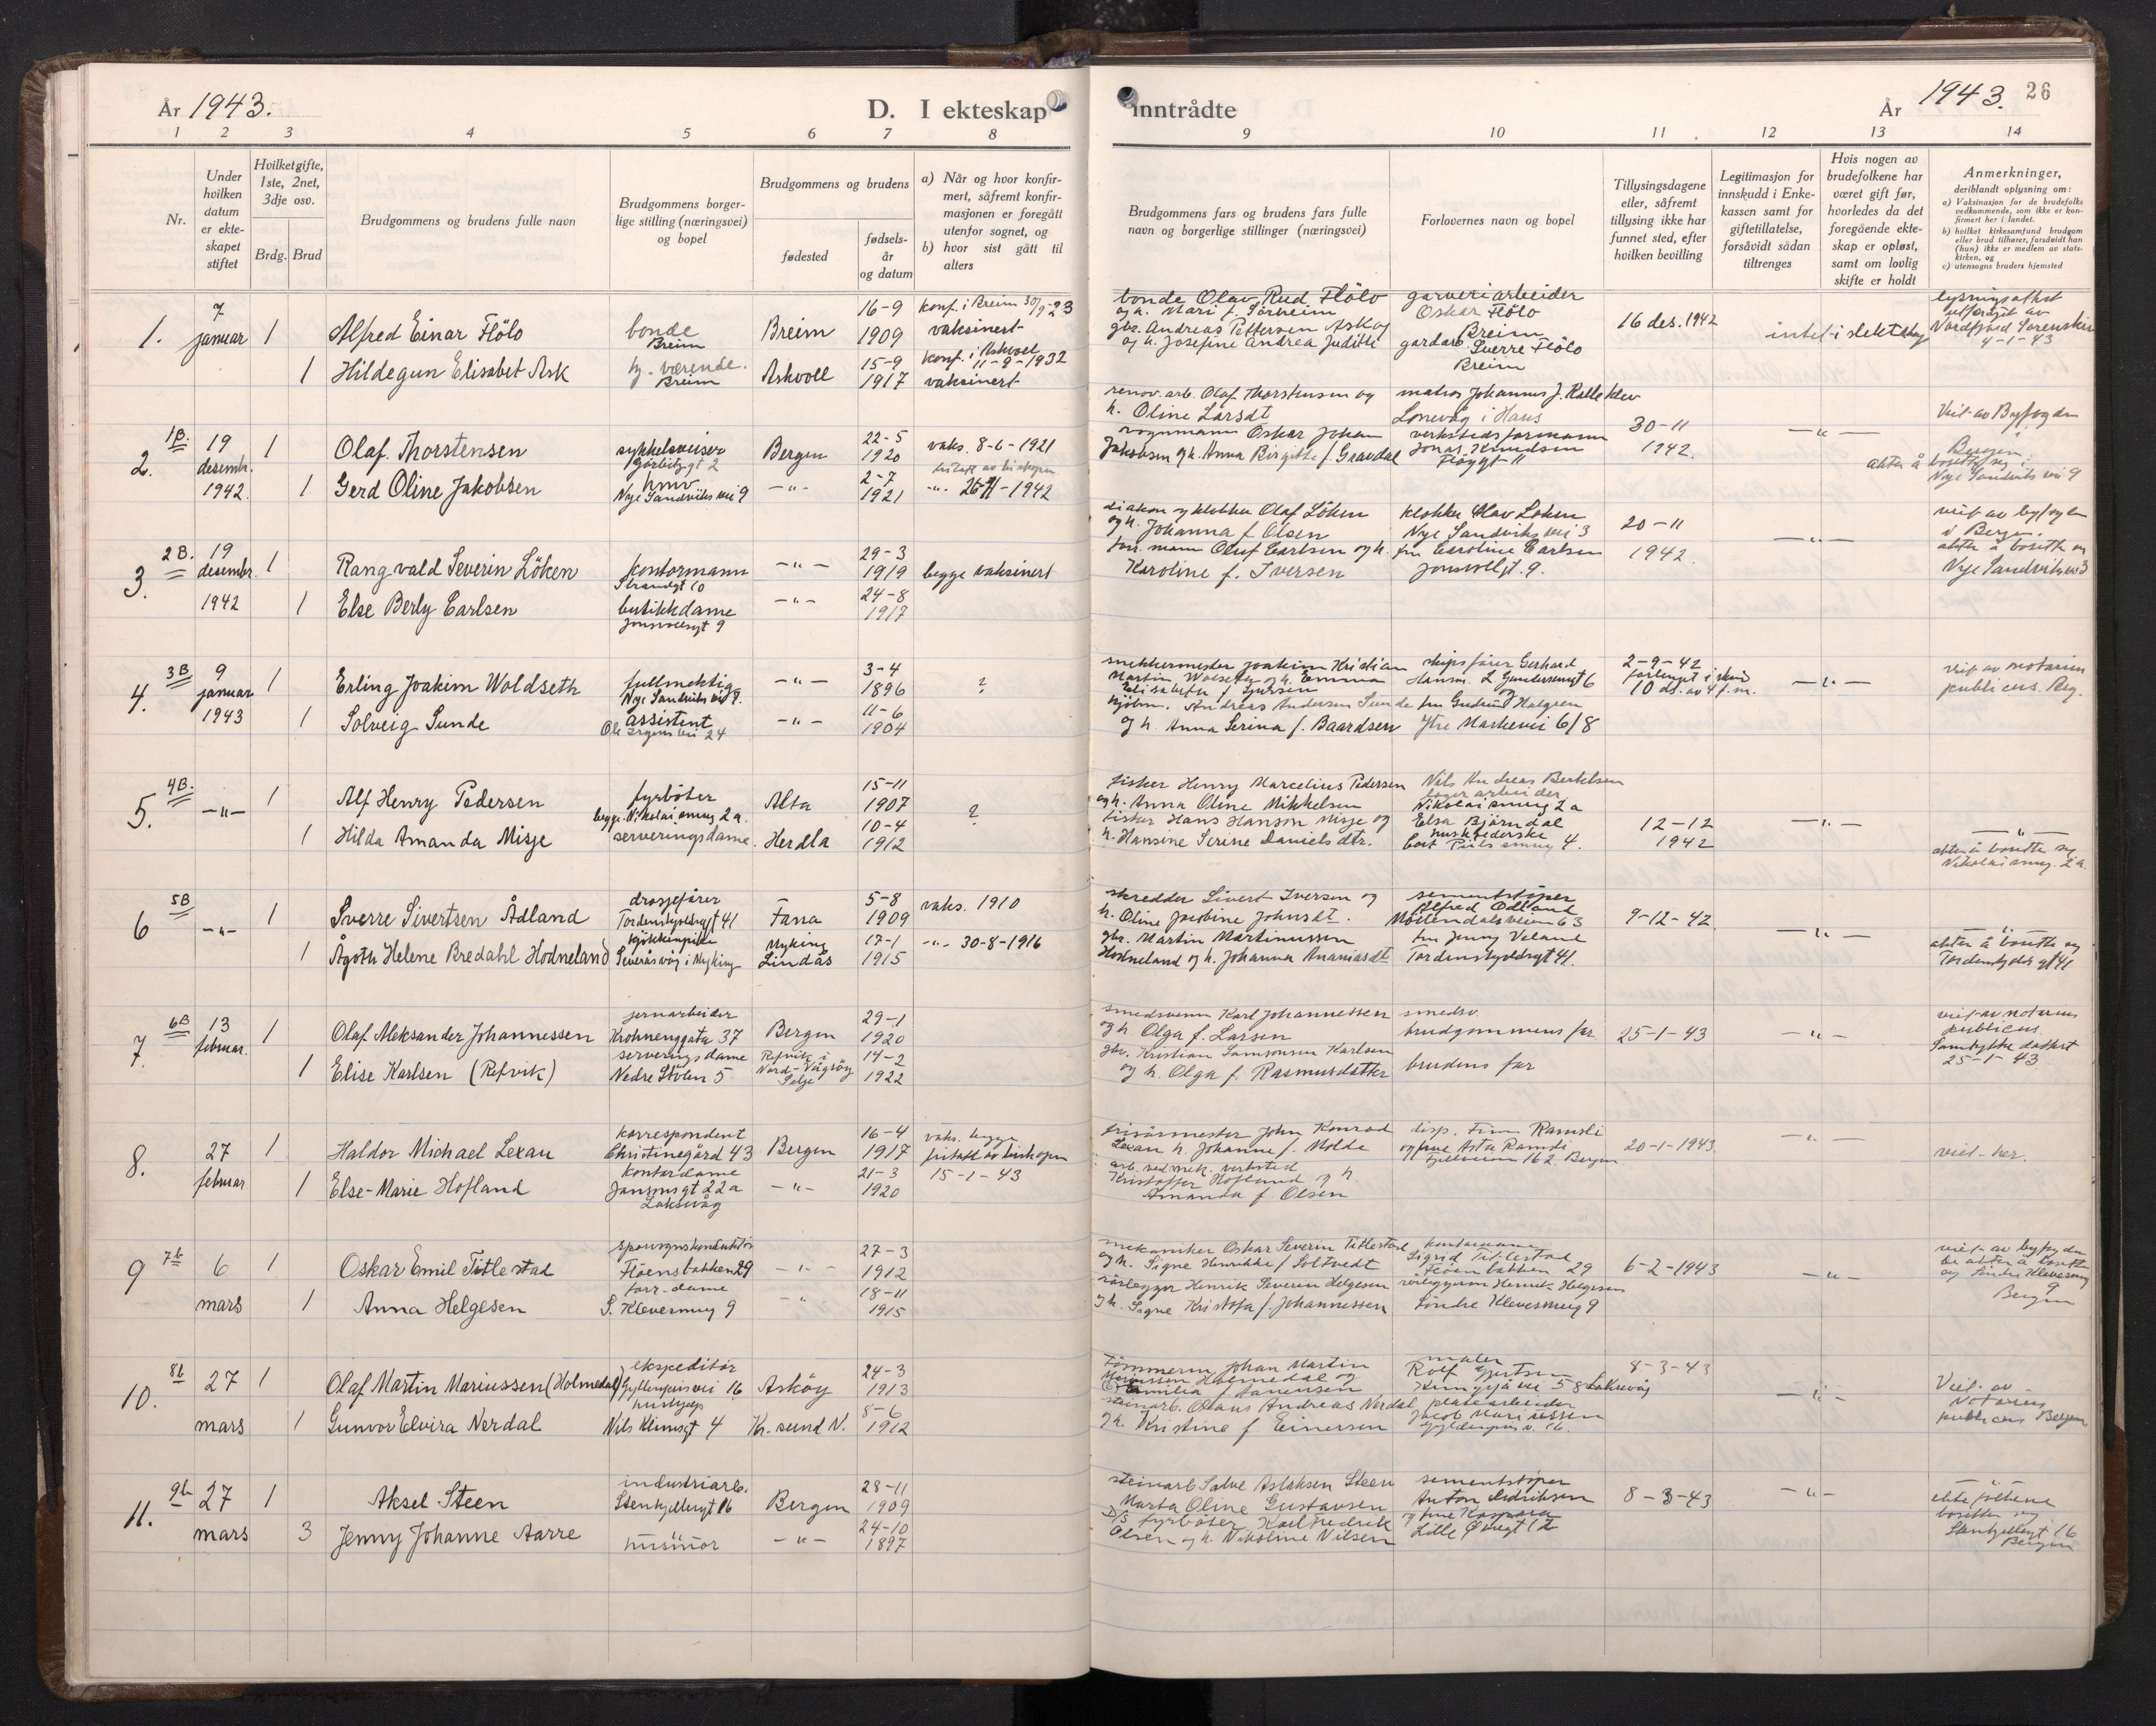 År 1943.
D. I ekteskap
inntrådte
År 1943. 26
1 2 3 4 5 6 7 8 9 10 11 12 13 14
Nr.
Under hvilken datum er ekteskapet stiftet
Hvilket gifte, 1ste, 2net, 3dje osv.
Brdg. Brud
Brudgommens og brudens fulle navn
Brudgommens borgerlige stilling (næringsvei) og bopel
Brudgommens og brudens
fødested
fødselsår og datum
a) Når og hvor konfirmert, såfremt konfirmasjonen er foregått utenfor sognet, og
b) hvor sist gått til alters
Brudgommens fars og brudens fars fulle navn og borgerlige stillinger (næringsvei)
Forlovernes navn og bopel
Tillysingsdagene eller, såfremt tillysing ikke har funnet sted, efter hvilken bevilling
Legitimasjon for innskudd i Enkekassen samt for giftetillatelse, forsåvidt sådan tiltrenges
Hvis nogen av brudefolkene har været gift før, hvorledes da det foregående ekteskap er opløst, samt om lovlig skifte er holdt
Anmerkninger,
deriblandt oplysning om:
a) Vaksinasjon for de brudefolks vedkommende, som ikke er konfirmert her i landet.
b) hvilket kirkesamfund brudgom eller brud tilhører, forsåvidt han (hun) ikke er medlem av statskirken, og
c) utensogns bruders hjemsted
1. 7 januar 1 Alfred Einar Flölo bonde Breim Breim 16-9 1909 konf. i Breim 30/9 23 vaksinert
1 Hildegun Elisabet Ask hj. værende. Breim Askvoll 15-9 1917 konf. i Askvoll 11-9-1932 vaksinert
bonde Olav Rud. Flölo og h. Mari f. Sörheim
gbr. Andreas Pettersen Ask og og h. Josefine Andrea Judith
garveriarbeider Oskar Flölo Breim
gardarb. Sverre Flölo Breim
16 des. 1942
intet i slektskap
lysningsattest utferdiget av Nordfjord Sorenskriv 4-1-43
2. 1B. 19 desembr. 1942 1 Olaf Thorstensen sykkelviser 2 Bergen 22-5 1920 vaks. 8-6-1921
1 Gerd Oline Jakobsen hmv Nye Sandviks vei 9 -"- 2-7 1921 -"- 26-11-1942
renov. arb. Olaf Thorstensen og h. Oline Larsdt
vognmann Oskar Johan Jakobsen og h. Anna Birgitte f. Gravdal
matros Johannes J. Kalleklev Lonevåg i Haus
verkstedsformann Jonas Knudsen
30-11 1942.
-"-
Viet av Byfogden Bergen.
akter å bosette seg i Nye Sandviks vei 9
3. 2B. 19 desembr. 1942 1 Rangvald Severin Löken kontormann Strandgt 10 -"- 29-3 1919 begge vaksinert
1 Else Berly Carlsen butikkdame Jonsvollsgt 9 -"- 24-8 1917
diakon og klokker Olaf Löken og h. Johanna f. Olsen
forr. mann Oluf Carlsen og h. Karoline f. Iversen
klokker Olav Loken Nye Sandviks vei 3
fru Caroline Carlsen Jonsvollgt. 9.
20-11 1942
-"-
viet av byfogden i Bergen.
akter å bosette seg Nye Sandviksv. 3
4. 3B 9 januar 1943 1 Erling Joakim Woldseth fullmektig Nye Sandviks vei 9. -"- 3-4 1896 ?
1 Solveig Sunde assistent Ole Irgens vei 24 -"- 11-6 1904
snekkermester Joakim Kristian Martin Wolseth og h. Emma Elisabeth f. Iversen
kjöbm. Andreas Andersen Sunde og h. Anna Serina f. Baardsen
skipsförer Gerhard Hansen L. Gundersensgt 6
og fru Gudrun Halgren Ytre Markevei 6/8
2-9-42 forlenget i skriv 10 ds. av 4 f.m.
-"-
viet av notarius publicus. Berg.
5. 4B. -"- 1 Alf Henry Pedersen fyrböter Alta 15-11 1907 ?
begge. Nikolaismug 2a.
1 Hilda Amanda Misje serveringsdame. Herdla 10-4 1912
fisker Henry Marcelius Pedersen og h. Anna Oline Mikkelsen
fisker Hans Hanson Misje og h. Hansine Serine Danielsdtr.
Nils Andreas Berkelsen lagerarbeider Nikolaismug 2a
Elsa Björndal huskbederske Cort Piilsmug 4.
12-12 1942
-"-
-"-
akter å bosette seg Nikolaismug. 2a
6 5B -"- 1 Sverre Sivertsen Ådland drosjefører Tordenskjoldsgt 41 Fana 5-8 1909 vaks. 1910
1 Ågoth Helene Bredahl Hodneland kjökkenpike Severåsvåg i Myking Myking Lindås 17-1 1915 -"- 30-8-1916
skredder Sivert Iversen og h. Oline Jacobine Johnsdt.
gbr. Martin Martinussen Hodneland og h. Johanna Ananiasdt
sementstöper Alfred Ödland Möllendalsveien 63
fru Jenny Veland Tordenskjoldsgt 41.
9-12-42.
-"-
-"-
akter å bosette seg Tordenskjolds gt 41
7. 6B 13 februar. 1 Olaf Aleksander Johannessen jernarbeider Krohnengata 37 Bergen 29-1 1920
1 Elise Karlsen (Refvik) serveringsdame Nedre Stölen 5 Refvik i Nord-Vågsöy Selje 14-2 1922
smedsvenn Karl Johannessen og h Olga f. Larsen
gbr. Kristian Samsonsen Karlsen og h. Olga f. Rasmusdatter
smedsv. brudgommens far
brudens far
25-1-43
-"-
viet av notarius publicus.
Samtykke datert 25-1-43
8. 27 februar 1 Haldor Michael Lexau korrespondent Christinegård 43 Bergen 16-4 1917 vaks. begge fritatt av biskopen 15-1-43
1 Else-Marie Hofland kontordame Jansonsgt 22a Laksevåg -"- 21-3 1920
frisörmester John Konrad Lexau h. Johanne f. Molde
arb. ved mek. verksted Kristoffer Hofland og h Amanda f Olsen
disp. Finn Ramsli og frue Asta Ramsli Fjellveien 162. Bergen
20-1-1943
-"-
viet her.
9 7b 6 mars 1 Oskar Emil Titlestad sporvognskonduktör Flöensbakken 29 -"- 27-3 1912
1 Anna Helgesen forr.dame S. Klevesmug 9 -"- 18-11 1915
mekaniker Oskar Severin Titlestad og h. Signe Henrikke f Soltvedt
rörlegger Henrik Severin Helgesen og h. Signe Kristofa f. Johannessen
kontordame Sigrid Titlestad Flöenbakken 29
rörleggersv. Henrik Helgesen Söndre Klevesmug 9
6-2-1943
-"-
viet av byfogden
de akter å bosette seg Söndre Klevesmug 9 Bergen
10. 8b 27 mars 1 Olaf Martin Mariussen (Holmedal) ekspeditör Gyldenprisvei 16 Asköy 24-3 1913
1 Gunvor Elvira Nerdal hushjelp Nils Klimsgt 4 Kr. sund N. 8-6 1912
tömmerm. Johan Martin Mariussen Holmedal og Emilia f. Janensen
steinarb. Olaus Andreas Nerdal og h. Kristine f Einersen
maler Rolf Gjertsen Kringsjåvei 58 Laksevåg
platearbeider Jacob Mariussen Gyldenpris v. 16.
8-3-43
-"-
Viet av Notarius publicus Bergen
11. 9b 27 mars 1 Aksel Steen industriarb. Stenkjellergt 16 Bergen 28-11 1909
3 Jenny Johanne Aarre husmor -"- 24-10 1897
steinarb Salve Aslaksen Steen Marta Oline Gustavsen
D/S fyrböter Karl Fredrik Olsen og h. Nikoline Nilsen
sementstöper Anton Didriksen og frue Kaspara Lille Övregt 12
8-3-43
-"-
-"-
ektefolkene bosetter seg Stenkjellergt 16 Bergen